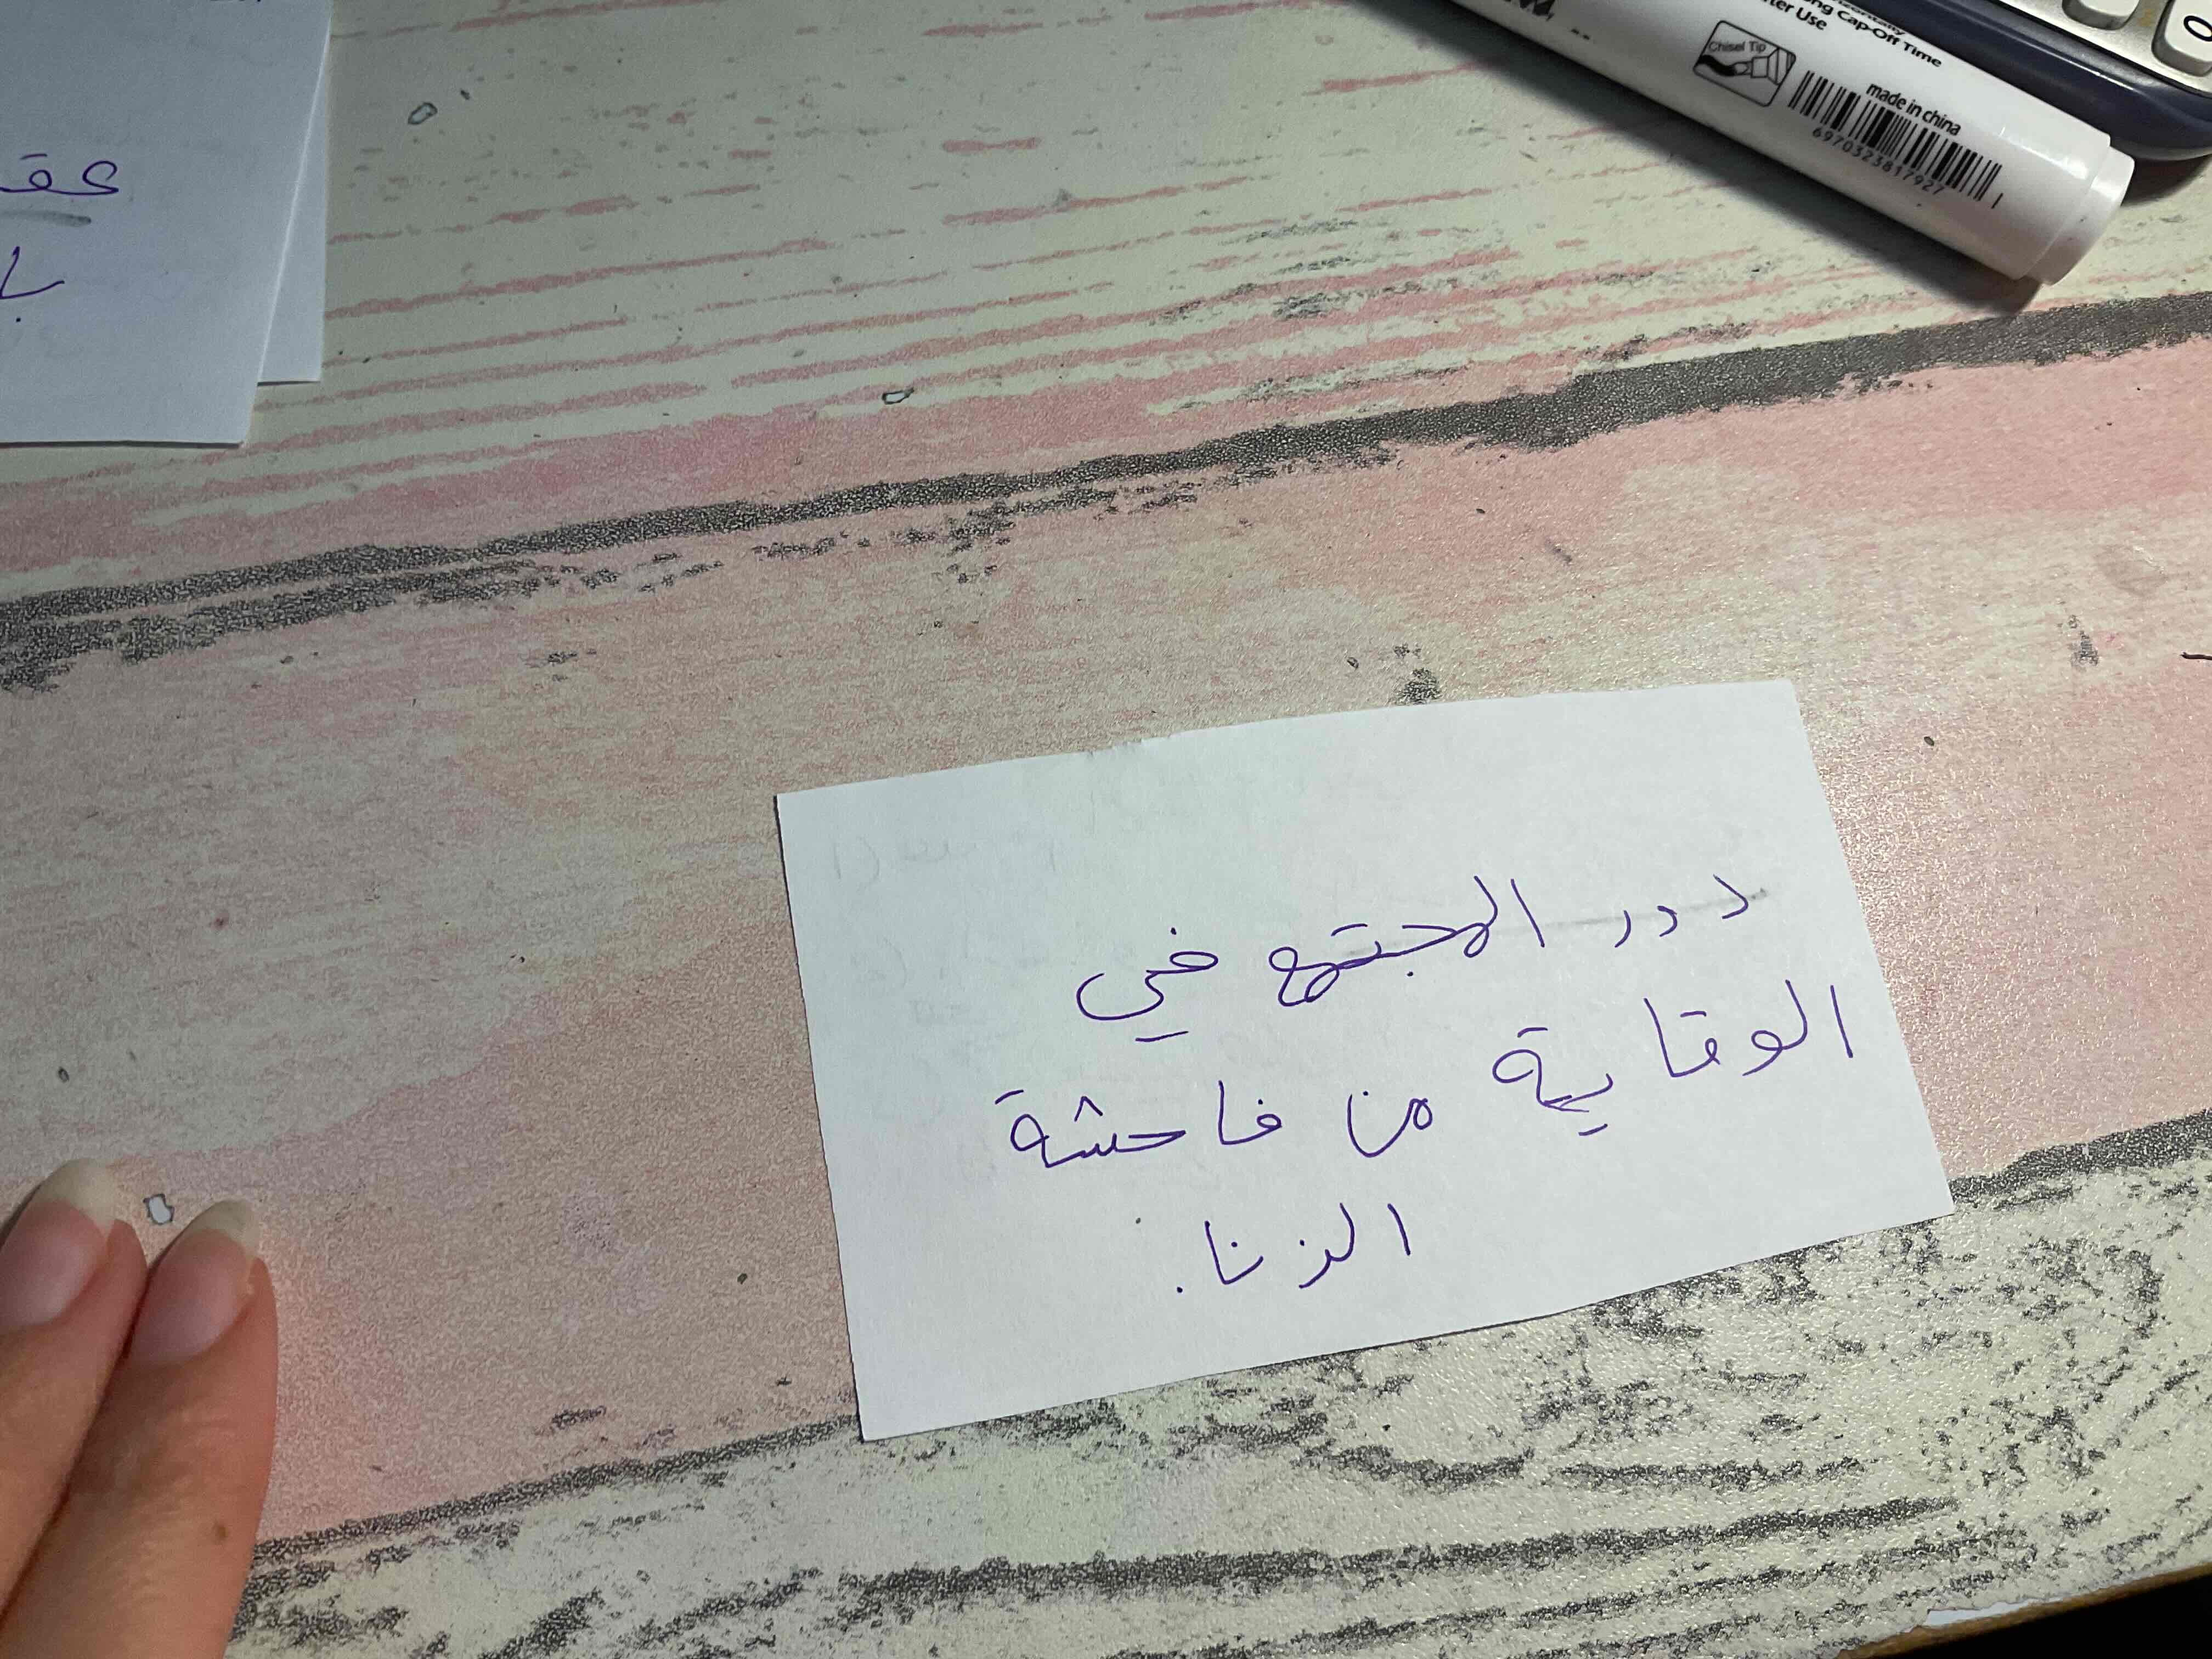 دور المجتمع في
الوقاية من فاحشة
الزنا.
عقـ
بـا
ong Cap-Off Time
fter Use
Chisel Tip
made in china
6970323817927